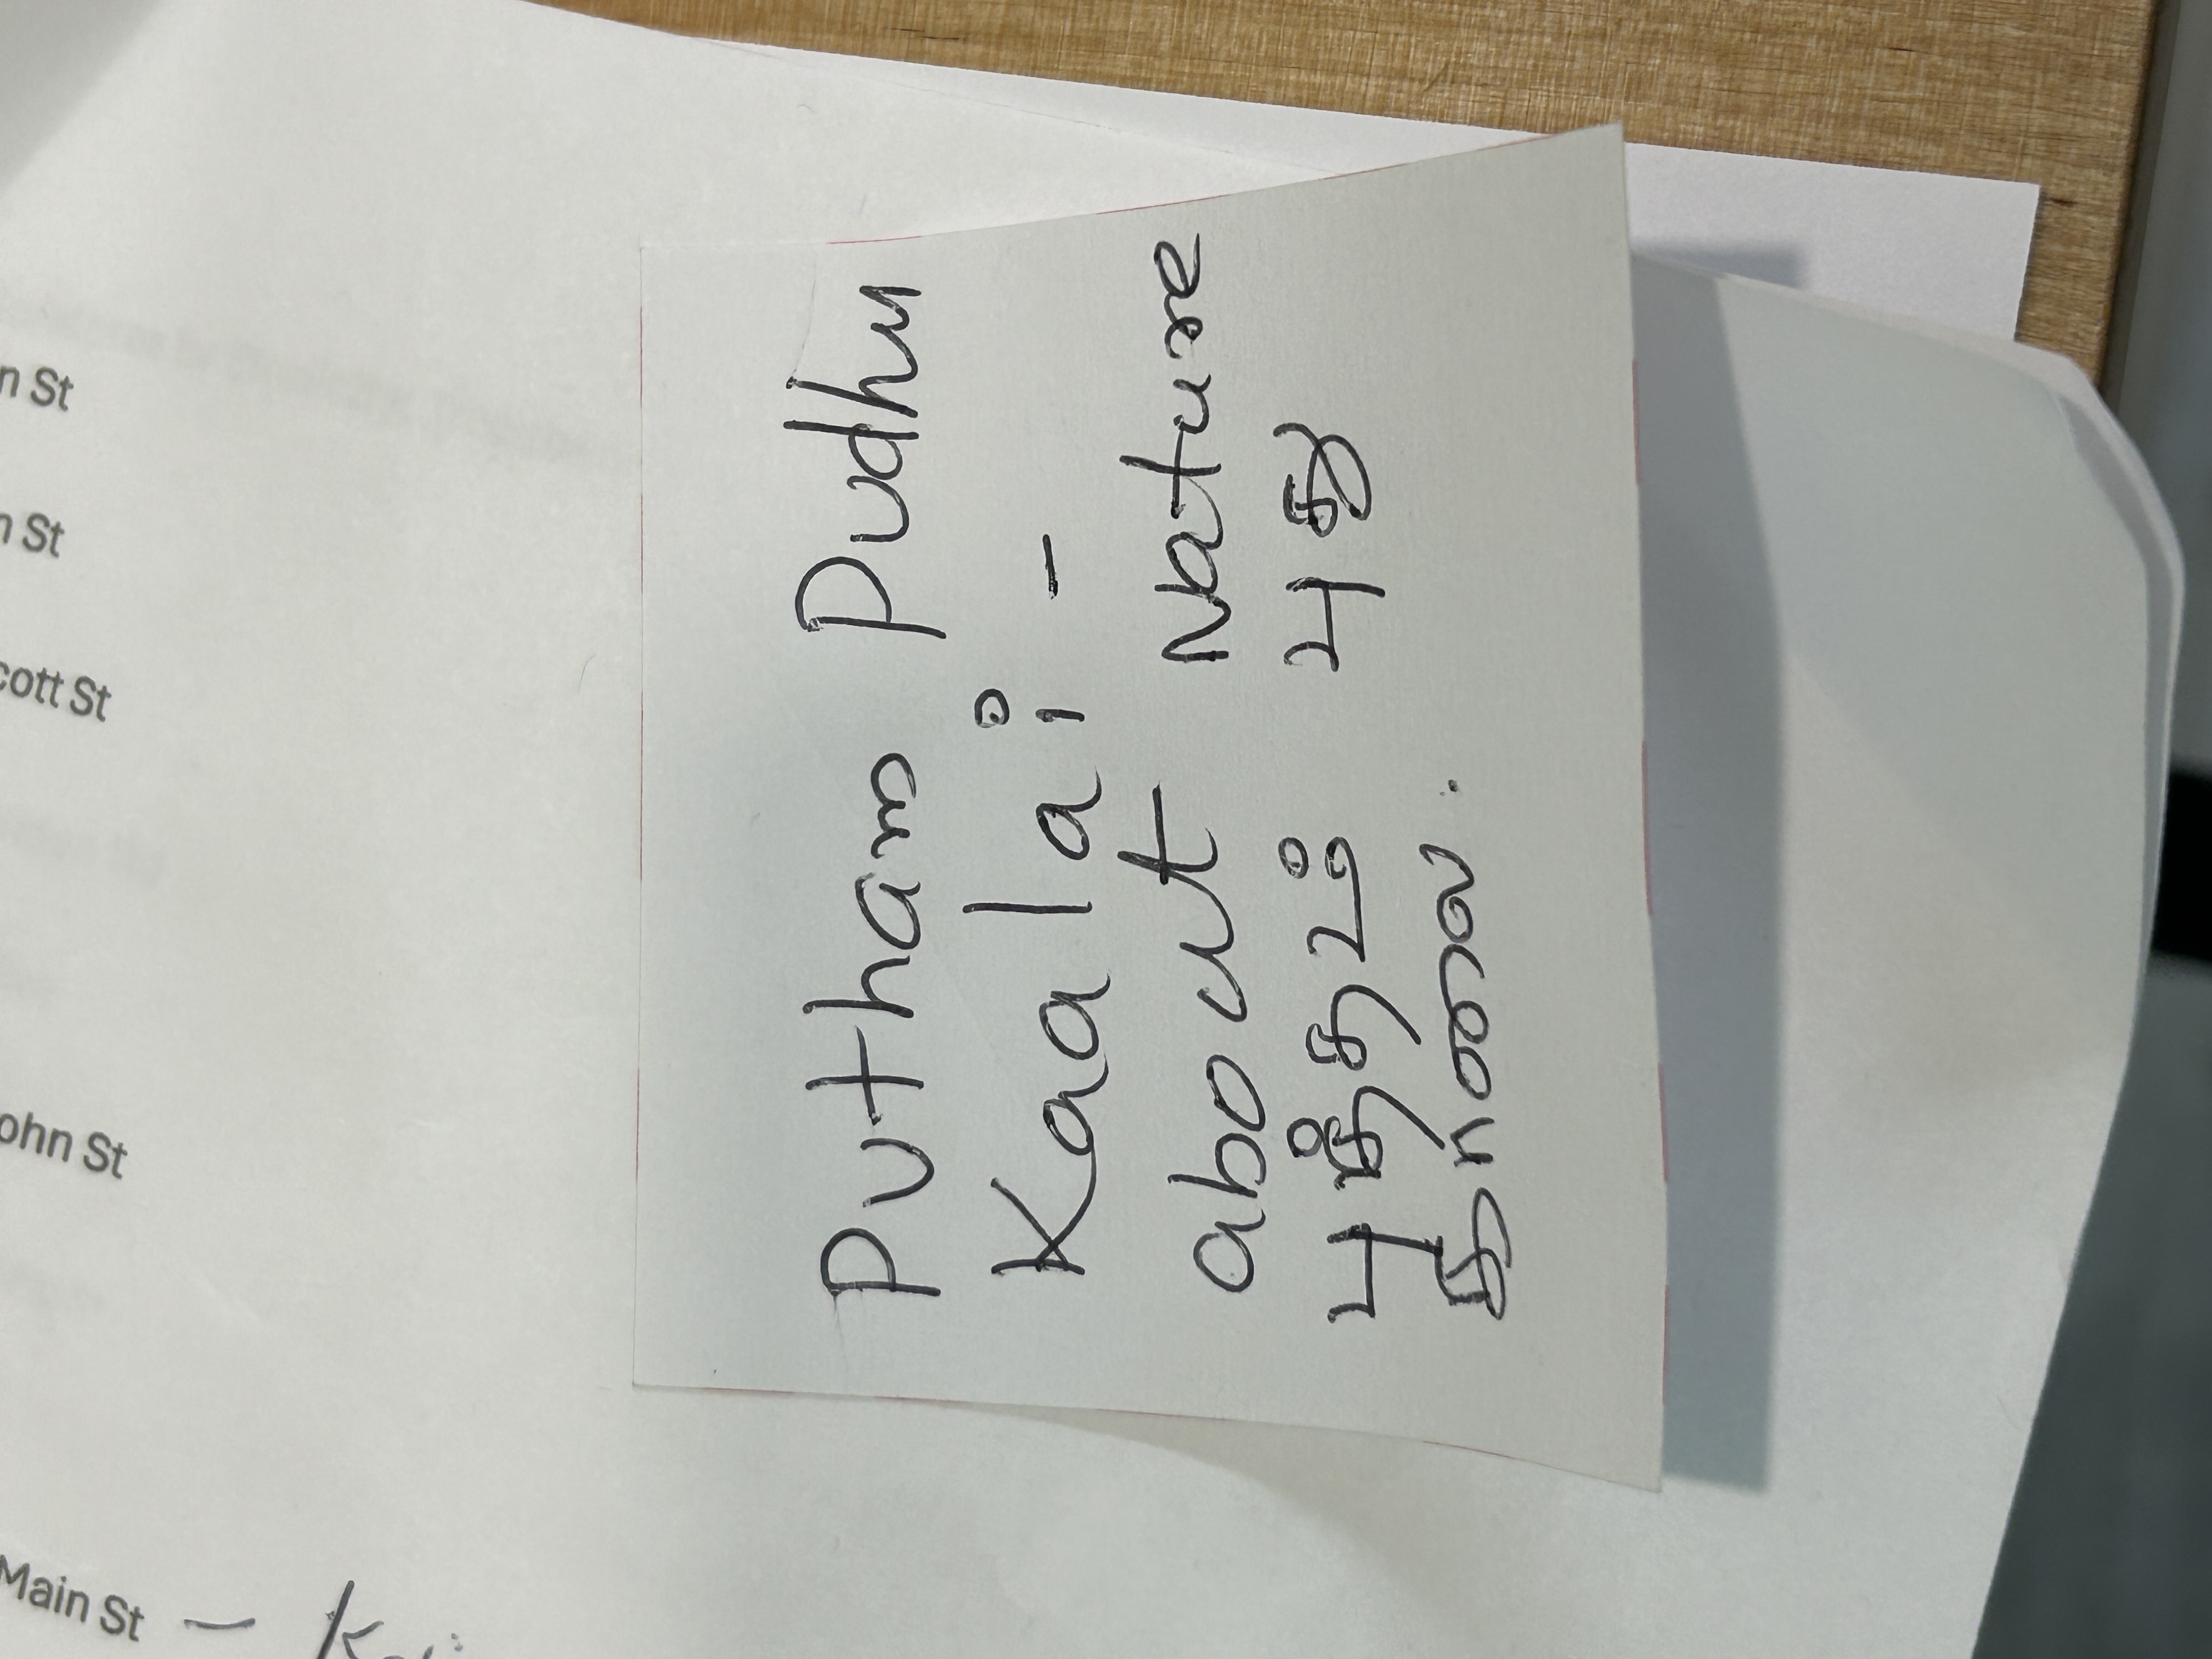 n St
n St
cott St
ohn St
Main St –
Putham Pudhu
Kaalai -
about Nature
புத்தம் புது
காலை.